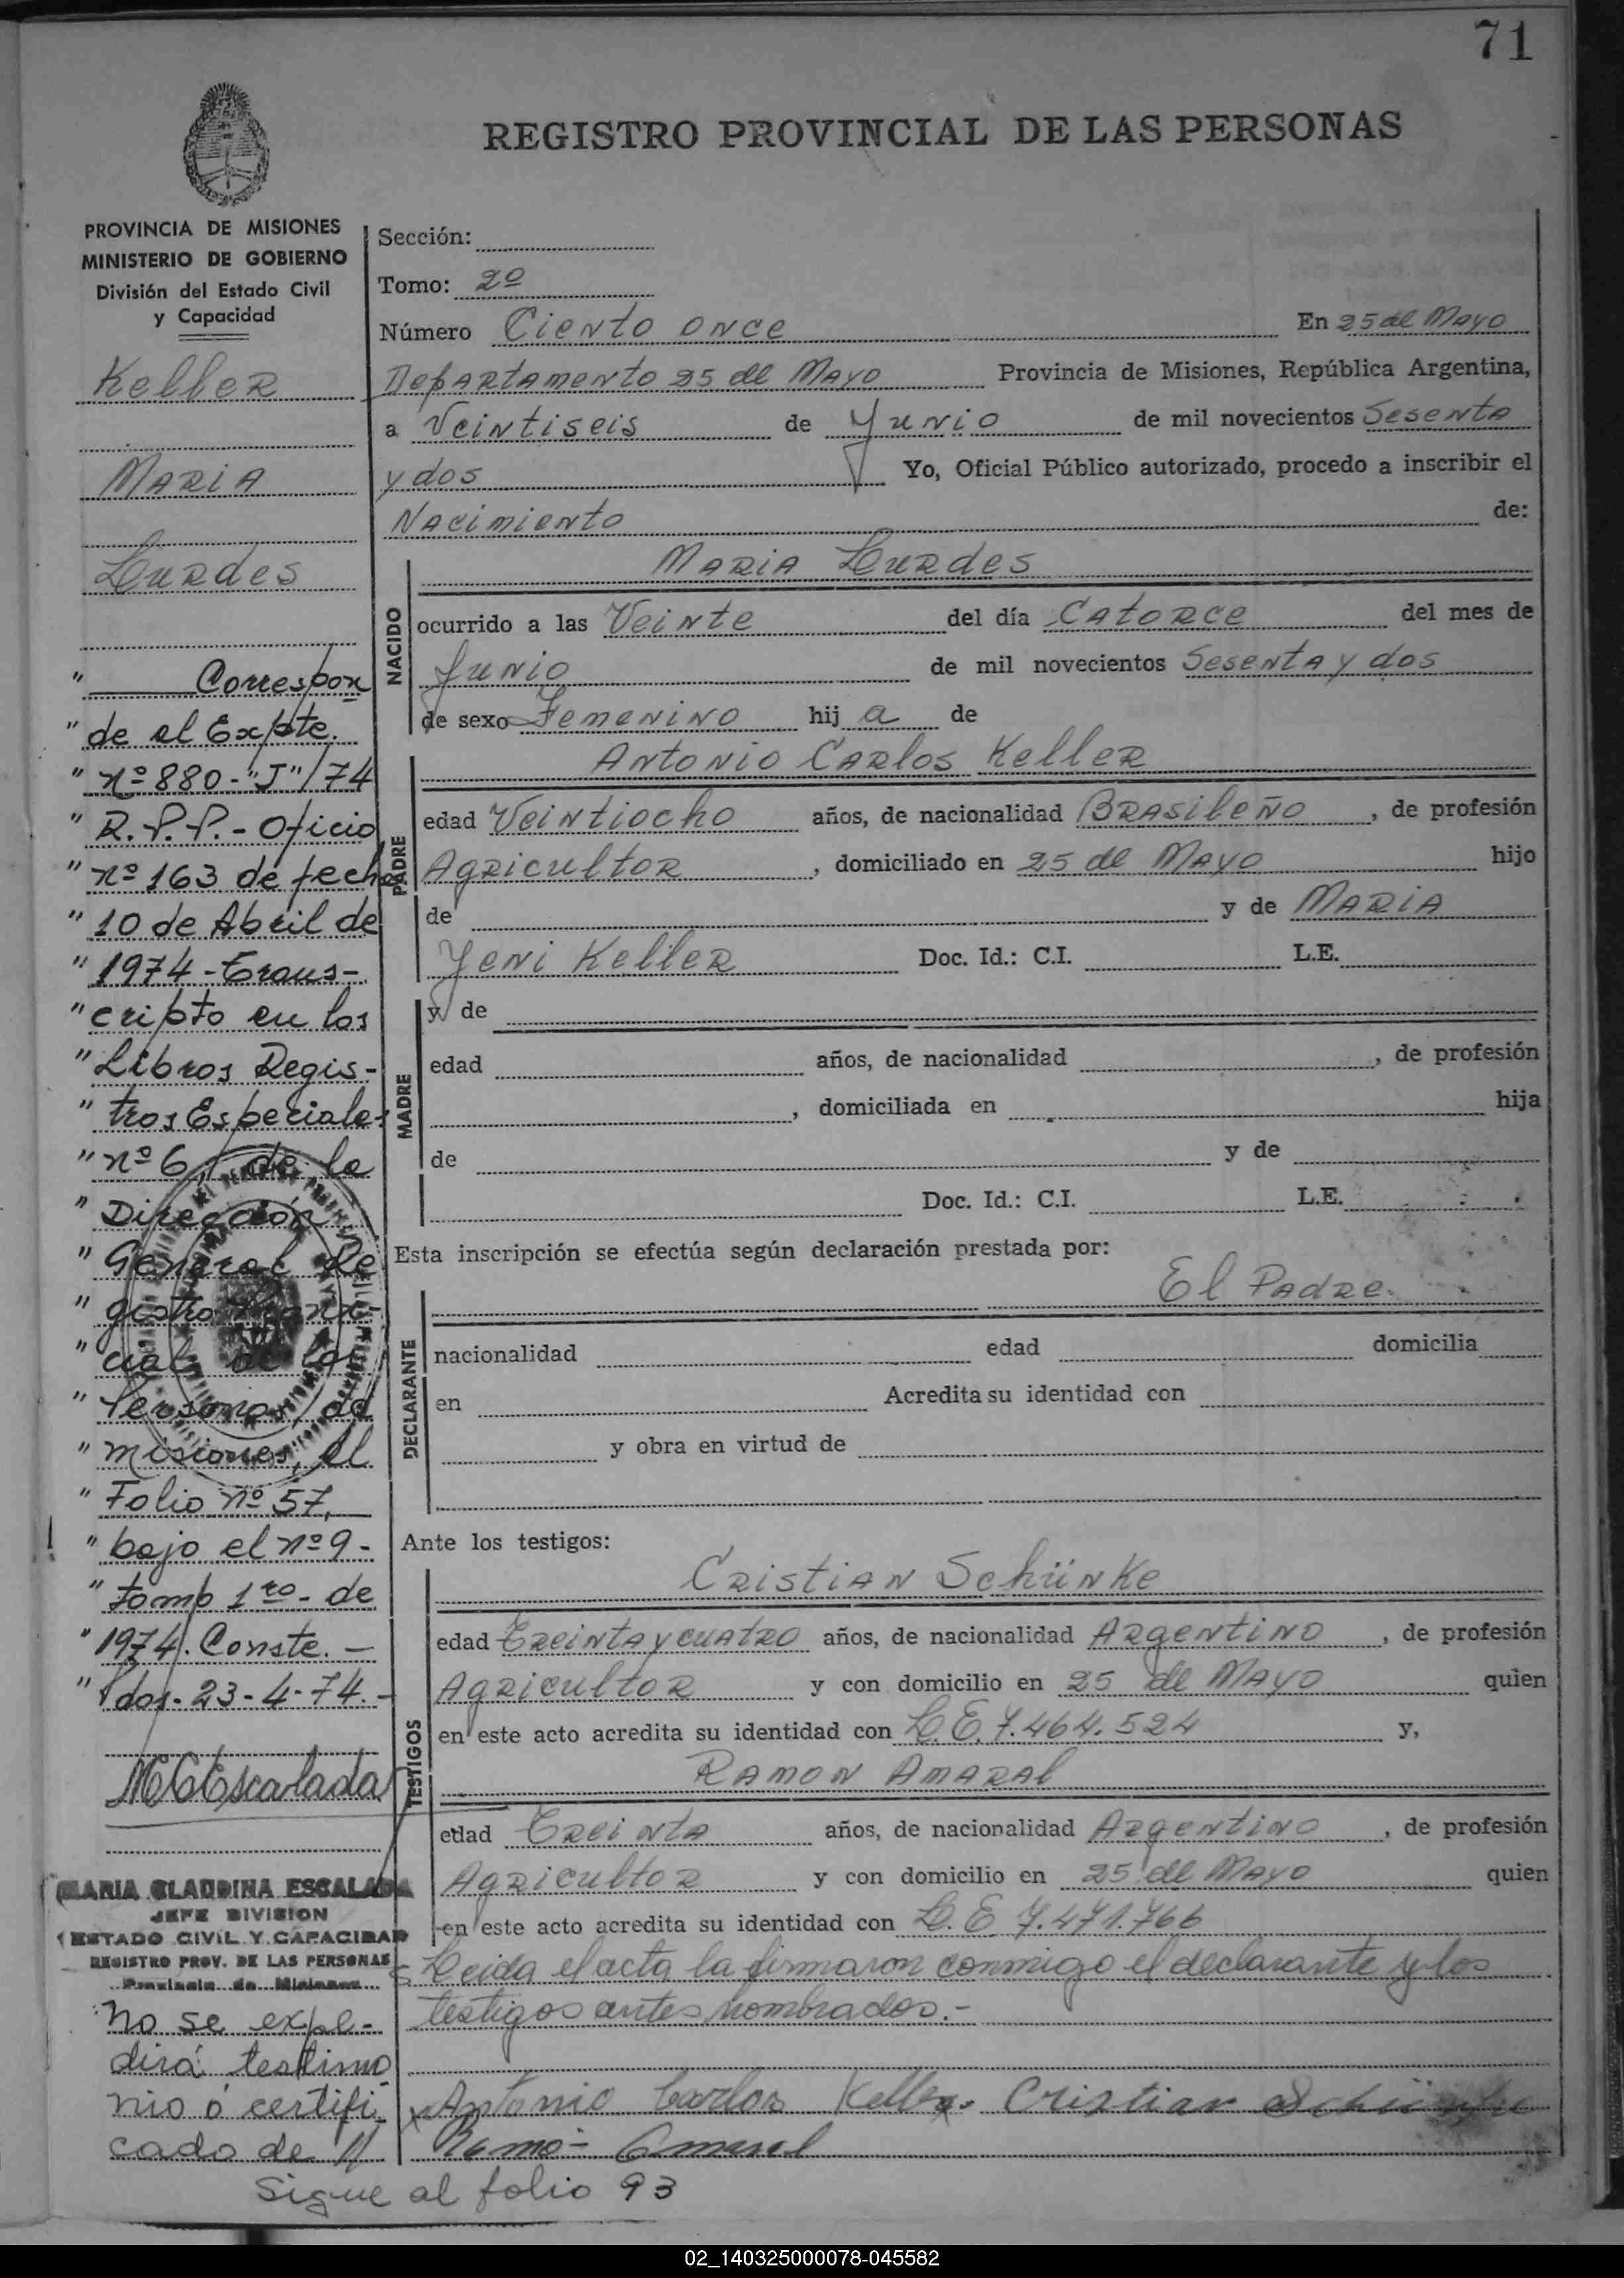 71
REGISTRO PROVINCIAL DE LAS PERSONAS
PROVINCIA DE MISIONES
MINISTERIO DE GOBIERNO
División del Estado Civil
y Capacidad
Keller
Maria
Lurdes
" Correspon
" de el Expte.
" nº 880-"J"/74
" R.P.P.- Oficio
" nº 163 de fecha
" 10 de Abril de
" 1974-Trans-
" cripto en los
" Libros Regis-
" tros Especiales
" nº 6, de la
" Dirección
" General Re
" gistro Provin-
" cial de las
" Personas de
" Misiones, al
" Folio nº 57,
" bajo el nº 9-
" tomo 1ro- de
" 1974. Conste.-
" Pdas-23-4-74.-
MCEscalada
MARIA CLAUDINA ESCALADA
JEFE DIVISION
ESTADO CIVIL Y CAPACIDAD
REGISTRO PROV. DE LAS PERSONAS
Provincia de Misiones
No se expe-
dirá testimo
nio ó certifi-
cado de
Sección:
Tomo: 2º
Número Ciento once En 25 de Mayo
Departamento 25 de Mayo Provincia de Misiones, República Argentina,
a Veintiseis de Junio de mil novecientos Sesenta
y dos Yo, Oficial Público autorizado, procedo a inscribir el
Nacimiento de:
NACIDO
Maria Lurdes
ocurrido a las Veinte del día Catorce del mes de
Junio de mil novecientos Sesenta y dos
de sexo Femenino hij a de
PADRE
Antonio Carlos Keller
edad Veintiocho años, de nacionalidad Brasileño, de profesión
Agricultor, domiciliado en 25 de Mayo hijo
de y de Maria
Yeni Keller Doc. Id.: C.I. L.E.
MADRE
y de
edad años, de nacionalidad , de profesión
, domiciliada en hija
de y de
Doc. Id.: C.I. L.E.
Esta inscripción se efectúa según declaración prestada por:
DECLARANTE
El Padre.
nacionalidad edad domicilia
en Acredita su identidad con
y obra en virtud de
Ante los testigos:
TESTIGOS
Cristian Schünke
edad Treinta y cuatro años, de nacionalidad Argentino, de profesión
Agricultor y con domicilio en 25 de Mayo quien
en este acto acredita su identidad con L.E. 7.464.524 y,
Ramon Amaral
edad Treinta años, de nacionalidad Argentino, de profesión
Agricultor y con domicilio en 25 de Mayo quien
en este acto acredita su identidad con L.E 7.471.766
Leida el acta la firmaron conmigo el declarante y los
testigos antes nombrados.-
Antonio Carlos Keller. Cristian Schünke
Ramo- Amaral
Sigue al folio 93
02_140325000078-045582